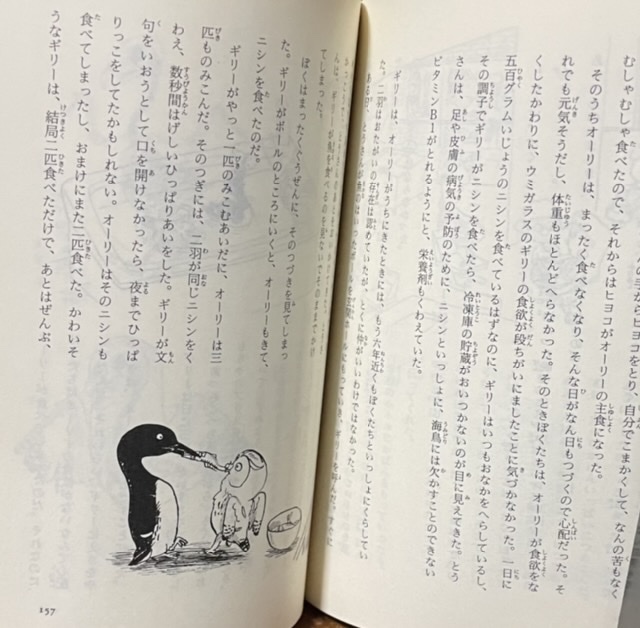 むしゃむしゃ食べたので、それからはヒヨコがオーリーの主食になった。
そのうちオーリーは、まったく食べなくなり、そんな日がなん日もつづくので心配だった。そ
れでも元気そうだし、体重もほとんどへらなかった。そのときぼくたちは、オーリーが食欲をな
くしたかわりに、ウミガラスのギリーの食欲が段ちがいにましたことに気づかなかった。一日に
五百グラムいじょうのニシンを食べているはずなのに、ギリーはいつもおなかをへらしているし、
その調子でギリーがニシンを食べたら、冷凍庫の貯蔵がおいつかないのが目に見えてきた。とう
さんは、足や皮膚の病気の予防のために、ニシンといっしょに、海鳥には欠かすことのできない
ビタミンB1がとれるようにと、栄養剤もくわえていた。
ギリーは、オーリーがうちにきたときには、もう六年近くもぼくたちといっしょにくらしてい
た。二羽はおたがいの存在は認めていたが、とくに仲がいいわけではなかった。
ある日、とうさんが
てしまった。
ぼくはまったくぐうぜんに、そのつづきを見てしまっ
た。ギリーがボールのところにいくと、オーリーもきて、
ニシンを食べたのだ。
ギリーがやっと一匹のみこむあいだに、オーリーは三
匹ものみこんだ。そのつぎには、二羽が同じニシンをく
わえ、数秒間はげしいひっぱりあいをした。ギリーが文
句をいおうとして口を開けなかったら、夜までひっぱ
りっこをしてたかもしれない。オーリーはそのニシンも
食べてしまったし、おまけにまた二匹食べた。かわいそ
うなギリーは、結局二匹食べただけで、あとはぜんぶ、
157